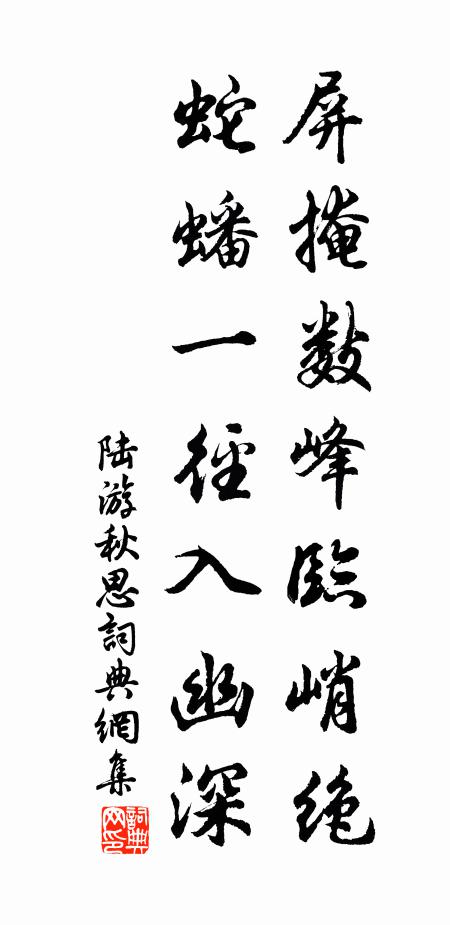 屏掩数峰臨峭絶
蛇蟠一徑入幽深
陆游秋思詞典網集
詞典网印